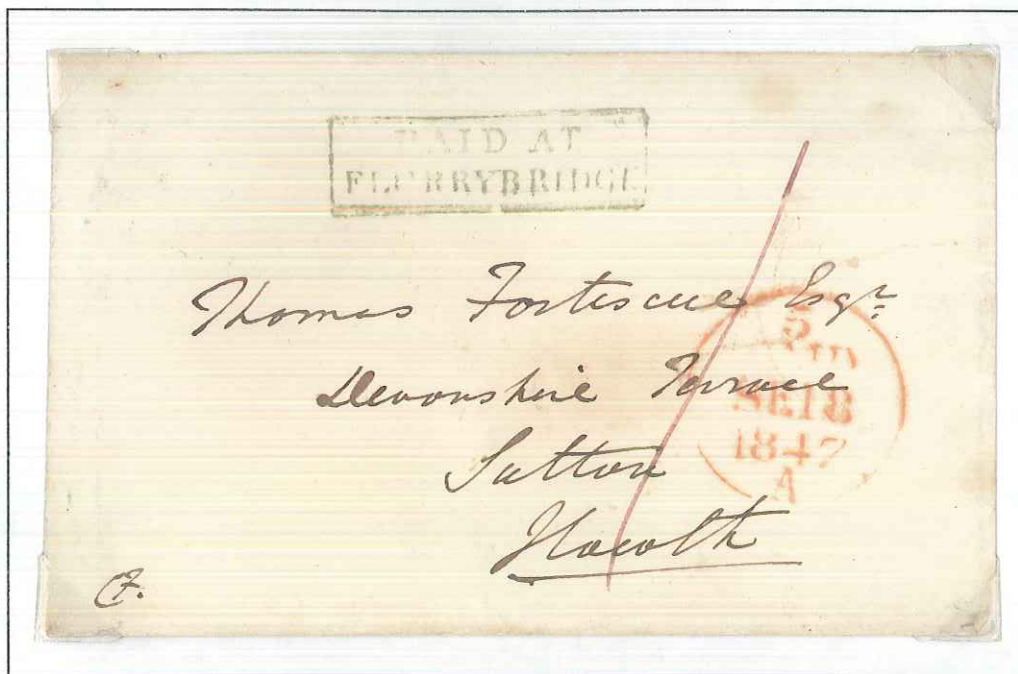 PAID AT
FLURRYBRIDGE
Thomas Fortescue Esqr
Devonshire Terrace
Sutton
Howoth
5
SE18
1847
A
F.